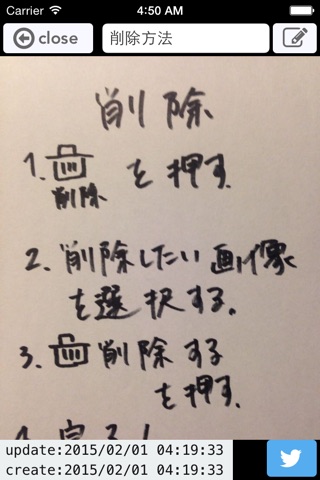 Carrier 4:50 AM
close 削除方法
削除
1. を押す.
削除
2. 削除したい画像
を選択する.
3. 削除する
を押す.
update:2015/02/01 04:19:33
create:2015/02/01 04:19:33